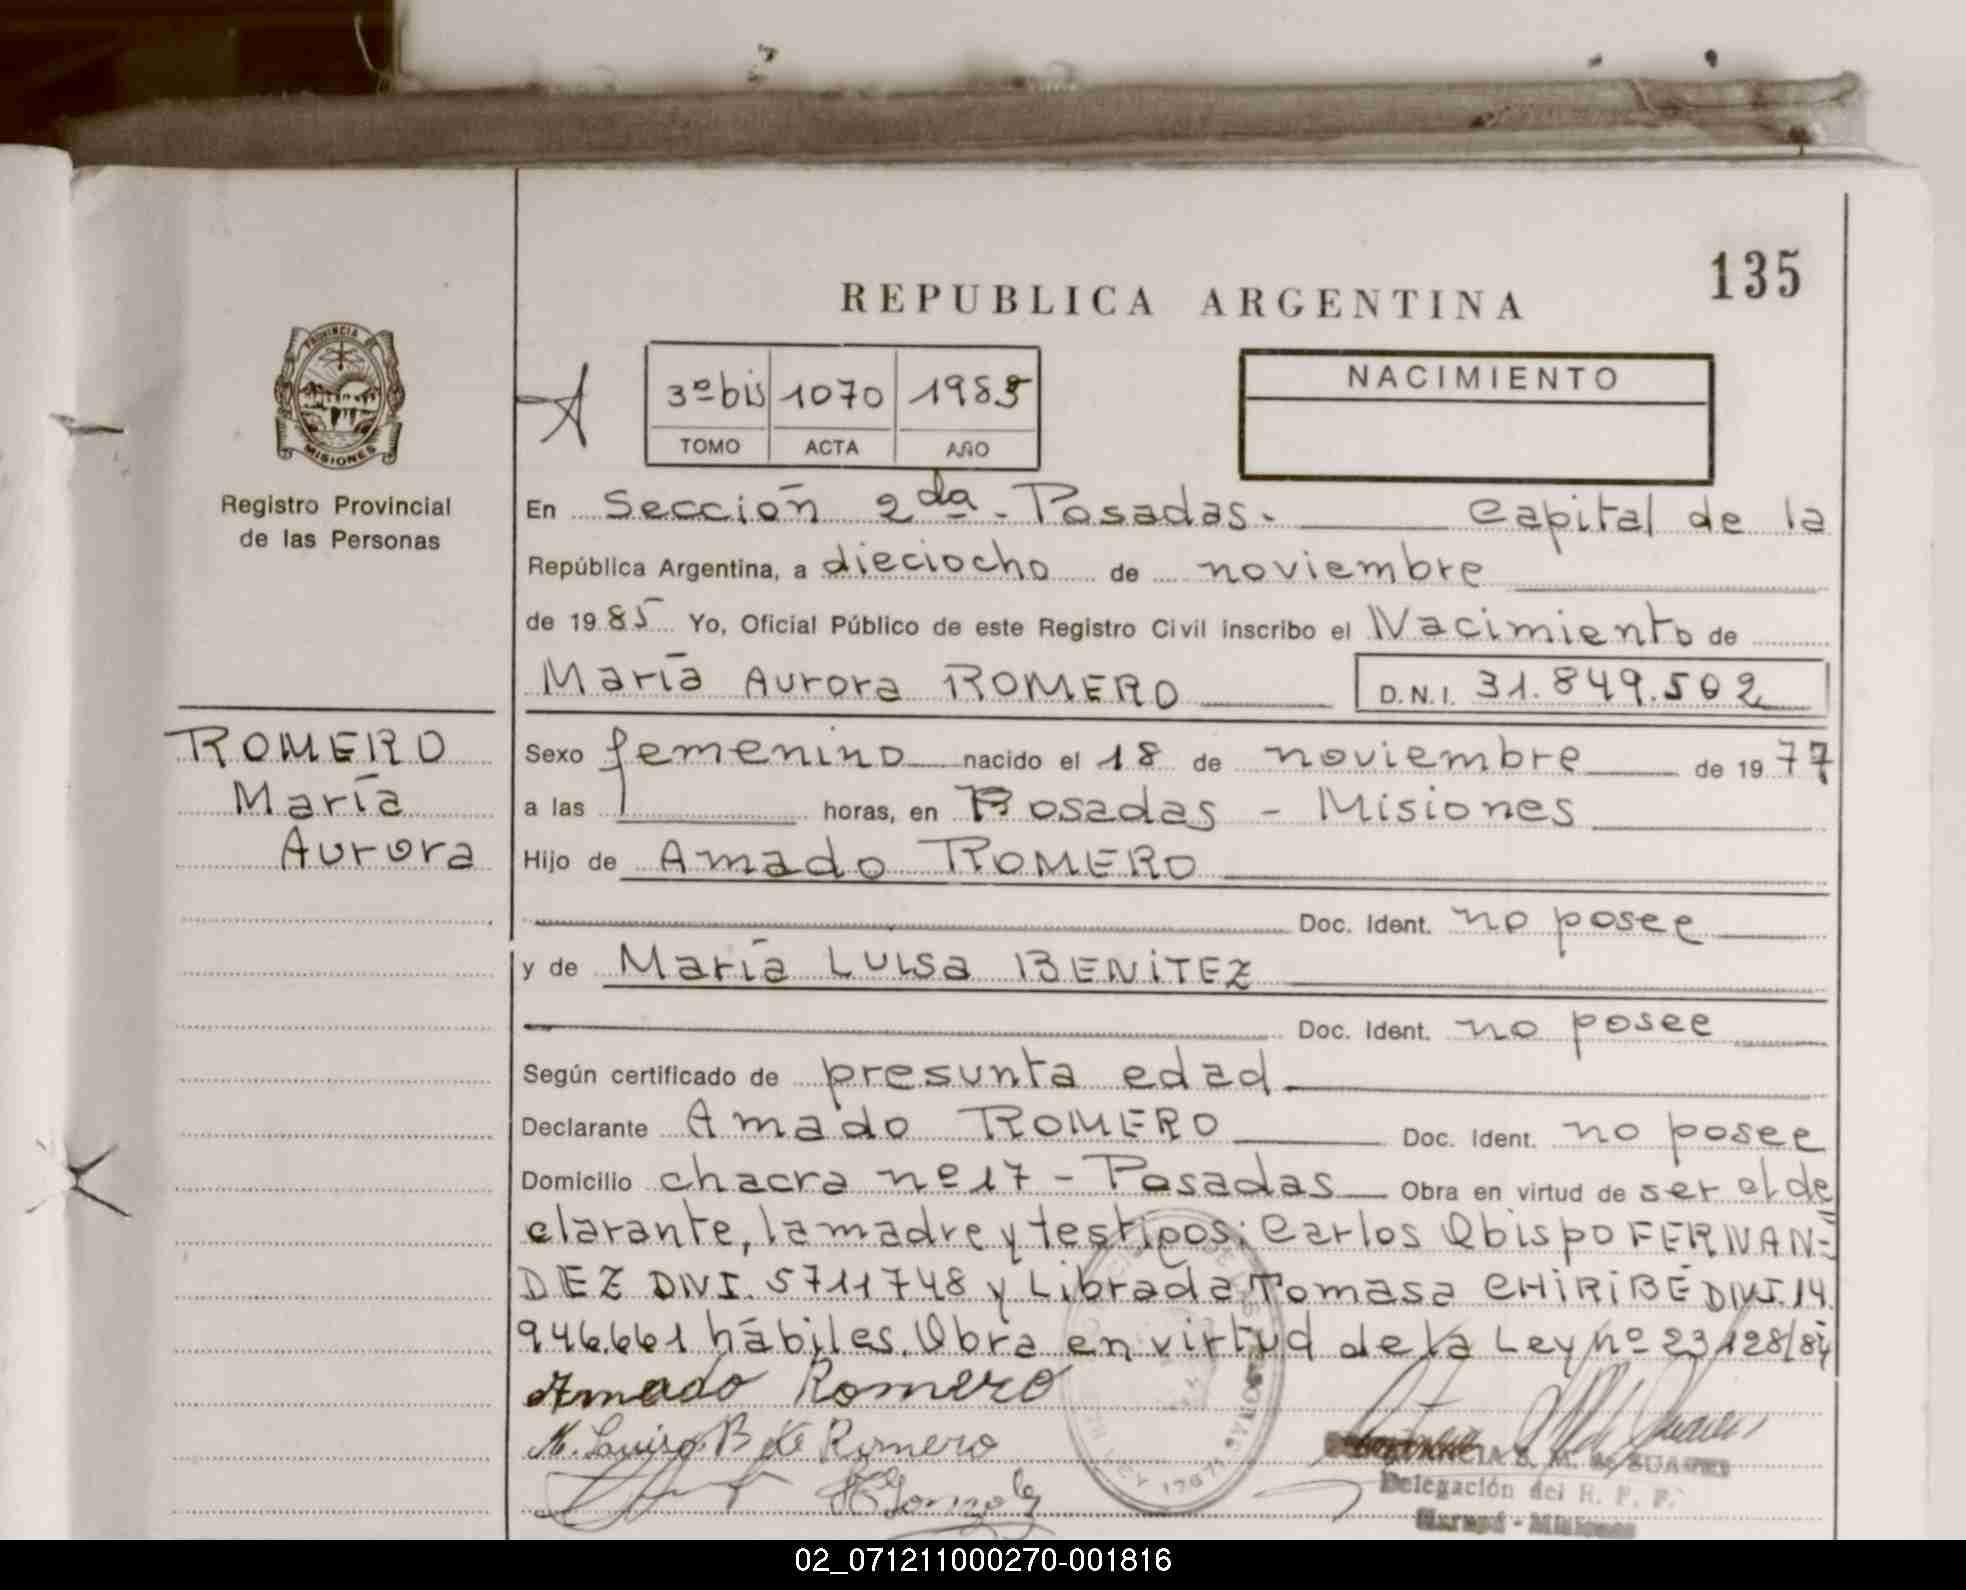 135
REPUBLICA ARGENTINA
PROVINCIA DE
MISIONES
Registro Provincial
de las Personas
A
3º bis 1070 1985
TOMO ACTA AÑO
NACIMIENTO
En Sección 2da - Posadas. Capital de la
República Argentina, a dieciocho de noviembre
de 1985 Yo, Oficial Público de este Registro Civil inscribo el Nacimiento de
María Aurora ROMERO D.N.I. 31.849.502
ROMERO
María
Aurora
Sexo femenino nacido el 18 de noviembre de 1977
a las horas, en Posadas - Misiones
Hijo de Amado ROMERO
Doc. Ident. no posee
y de María Luisa BENITEZ
Doc. Ident. no posee
Según certificado de presunta edad
Declarante Amado ROMERO Doc. Ident. no posee
Domicilio chacra nº 17 - Posadas Obra en virtud de ser el de
clarante, la madre y testigos: Carlos Obispo FERNAN=
DEZ DNI. 5711748 y Librada Tomasa CHIRIBÉ DNI. 14.
946.661 hábiles. Obra en virtud de la Ley nº 23128/84
Amado Romero
M. Luisa B de Romero
S. M. de SUAREZ
Delegación del R. P. P.
- Misiones
02_071211000270-001816